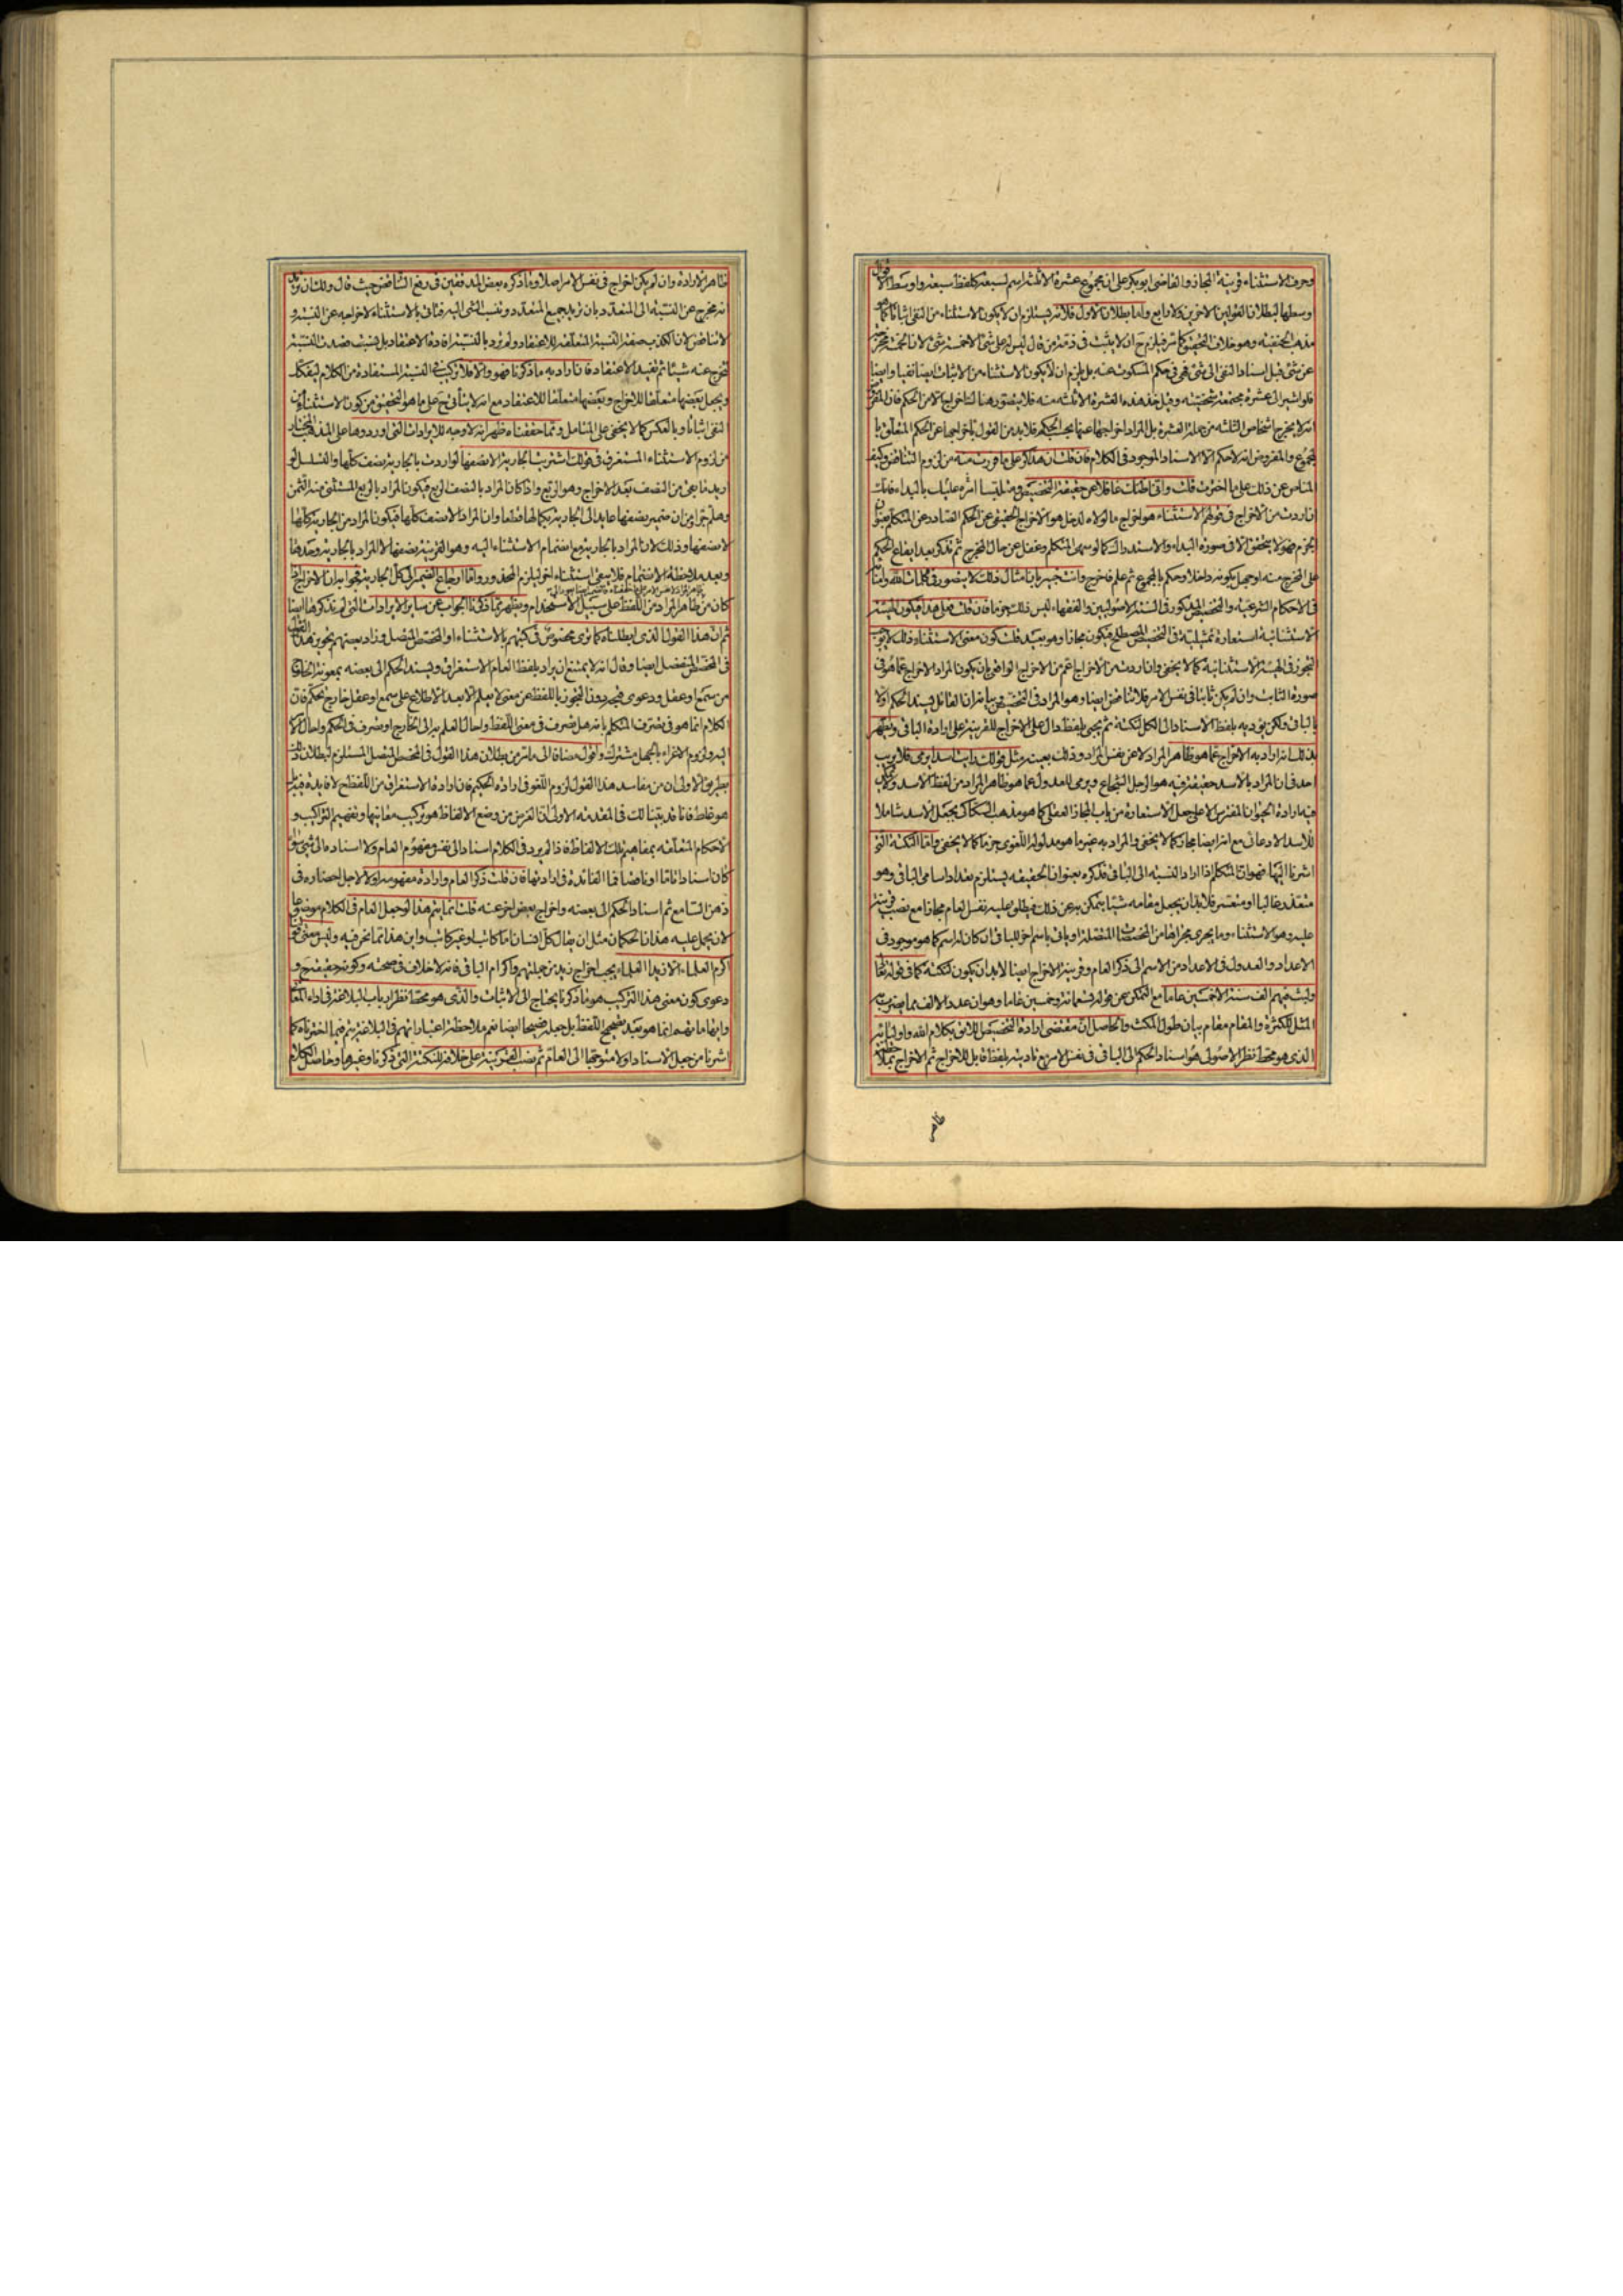 وحرف الاستثناء قرينة المجاز والقاضي ابو بكر على ان مجموع عشرة الا ثلثة اسم لسبعة كلفظ سبعة واوسط الاقوال
وسطها لبطلان القولين الاخيرين ولا رابع واما بطلان الاول فلانه يستلزم ان لا يكون الاستثناء من النفي اثباتا كما هو
مذهب الحنفية وهو خلاف التحقيق كما مر فيلزم ح ان لا يثبت في ذمة من قال ليس له على شئ الا خمسة شئ لان الخمسة مخرجة
عن شئ قبل اسناد النفي الى شئ فهي في حكم المسكوت عنه بل يلزم ان لا يكون الاستثناء من الاثبات ايضا نفيا وايضا
فلو اشير الى عشرة مجتمعة شخصية وقيل خذ هذه العشرة الا ثلثة منه فلا يتصور هنا اخراج الا من الحكم فان المفروض
انه لا يخرج اشخاص الثلثة من جملة العشرة بل المراد اخراجها عنها بحسب الحكم فلا بد من القول باخراجها عن الحكم المتعلق با
لمجموع والمفروض انه لا حكم الا الاسناد الموجود في الكلام فان قلت ان هذا كر على ما فررت منه من لزوم التناقض وكيف
المناص عن ذلك على ما اخترت قلت
ان اردت من الاخراج في قولهم الاستثناء هو اخراج ما لولاه لدخل هو الاخراج الحقيقي عن الحكم الصادر عن المتكلم بعنوان
الجزم فهو لا يتحقق الا في صورة البداء والاستدراك كما لو سهى المتكلم وغفل عن حال المخرج ثم تذكر بعد ايقاع الحكم
على المخرج منه او جهل بكونه داخلا وحكم بالمجموع ثم علم فاخرج وانت خبير بان امثال ذلك لا يتصور في كلمات الله وامنائه
في الاحكام الشرعية والتخصيص المذكور في السنة الاصوليين والفقهاء ليس ذلك جزما فان قلت فعلى هذا فيكون الهيئة
الاستثنائية استعارة تمثيلية في التخصيص المصطلح فيكون مجازا وهو بعيد قلت كون معنى الاستثناء ذلك لا يوجب
التجوز في الهيئة الاستثنائية كما لا يخفى وان اردت من الاخراج اعم من الاخراج الواقعي بان يكون المراد الاخراج عما هو في
صورة الثابت وان لم يكن ثابتا في نفس الامر فلا تناقض ايضا وهو المراد في التخصيص بيانه ان القائل يسند الحكم اولا
بالباقي ولكن يؤديه بلفظ الاسناد الى الكل لنكتة ثم يجئ بلفظ دال على الاخراج للقرينة على ارادة الباقي ويظهر
بذلك انه اراد به الاخراج عما هو ظاهر المراد لا عن نفس المراد وذلك بعينه مثل قولك رايت اسدا يرمي فلا ريب
احد في ان المراد بالاسد حقيقة فيه هو الرجل الشجاع ويرمي للعدول عما هو ظاهر المراد من لفظ الاسد
فيه ارادة الحيوان المفترس الا على جعل الاستعارة من باب المجاز العقلي كما هو مذهب السكاكي بجعل الاسد شاملا
للاسد الادعائي مع انه ايضا مجاز كما لا يخفى والمراد به غير ما هو مدلوله اللغوي جزما كما لا يخفى واما النكتة التي
اشرنا اليها فهو ان المتكلم اذا اراد النسبة الى الباقي فذكره بعنوان الحقيقة يستلزم تعداد اسامي الباقي وهو
متعذر غالبا او متعسر فلا بد ان يجعل مقامه شيئا يتمكن به عن ذلك فيطلق عليه نفس العام مجازا مع نصب قرينة
عليه وهو الاستثناء وما يجري مجراها من المخصصات المتصلة او ياتي باسم اخر للباقي ان كان له اسم كما هو موجود في
الاعداد والعدول في الاعداد من الاسم الى ذكر العام وقرينة الاخراج ايضا لا بد ان يكون لنكتة كما في قوله تعالى
ولبث فيهم الف سنة الا خمسين عاما مع التمكن عن قوله تسعمائة وخمسين عاما وهو ان عدد الالف مما يضرب به
المثل للكثرة والمقام مقام بيان طول المكث والحاصل ان مقتضى ارادة التخصيص اللائق بكلام الله واوليائه
الذي هو محط نظر الاصولي هو اسناد الحكم الى الباقي في نفس الامر مع تاديته بلفظ قابل للاخراج ثم الاخراج بملاحظة
ظاهر
ظاهر الارادة وان لم يكن اخراج في نفس الامر اصلا وما ذكره بعض المدققين في رفع التناقض حيث قال ولك ان تريد
انه مخرج عن النسبة الى المتعدد بان تريد جميع المتعدد وتنسب الشئ اليه فتاتي بالاستثناء لاخراجه عن النسبة و
لا تناقض لان الكذب صفة النسبة المتعلقة للاعتقاد ولم ترد بالنسبة افادة الاعتقاد بل نسبت قصدت النسبة
لتخرج عنه شيئا ثم تفيد الاعتقاد فان اراد به ما ذكرنا فهو والا فلا تركب في النسبة المستفادة من الكلام ليفكك
ويجعل بعضها متعلقا للاخراج وبعضها متعلقا للاعتقاد مع انه لا يتأتى ح على ما هو التحقيق من كون الاستثناء من
النفي اثباتا وبالعكس كما لا يخفى على المتامل ومما حققناه ظهر انه لا وجه للايرادات التي اوردوها على المذهب المختار
من لزوم الاستثناء المستغرق في قولك اشتريت الجارية الا نصفها لو اردت بالجارية نصف كلها والتسلسل لو
اريد ما بقي من النصف بعد الاخراج وهو الربع واذا كان المراد بالنصف الربع فيكون المراد بالربع المستثنى منه الثمن
وهلم جرا ومن ان ضمير نصفها عايد الى الجارية بكمالها قطعا وان المراد الا نصف كلها فيكون المراد من الجارية كلها
لا نصفها وذلك لان المراد بالجارية مع انضمام الاستثناء اليه وهو القرينة نصفها لا المراد بالجارية وحدها
وبعد ملاحظة الانضمام فلا يبقى استثناء اخر ليلزم المحذور واما ارجاع الضمير الى كل الجارية فجوابه ان الاخراج لما
كان من ظاهر المراد من اللفظ على سبيل الاستخدام ويظهر مما ذكرنا الجواب عن ساير الايرادات التي لم نذكرها ايضا
ثم ان هذا القول الذي ابطلناه كما ترى مخصوص في كتبهم بالاستثناء او المخصص المتصل وزاد بعضهم تجويز هذا القول
في المخصص المنفصل ايضا وقال انه لا يمتنع ان يراد بلفظ العام الاستغراق ويسند الحكم الى بعضه بمعونة الخارج
من سمع او عقل ودعوى قبح ردنا التجوز باللفظ عن معنى لا يعلم الا بعد الاطلاع على سمع او عقل خارج تحكم فان
الكلام انما هو في تصرف المتكلم بانه هل تصرف في معنى اللفظ واحال العلم به الى الخارج او تصرف في الحكم واحال الامر
اليه ولزوم الاغراء بالجهل مشترك واقول مضافا الى ما مر من بطلان هذا القول في المخصص المتصل المستلزم لبطلان ذلك
بطريق الاولى ان من مفاسد هذا القول لزوم اللغو في ارادة الحكيم فان ارادة الاستغراق من اللفظ ح لا فايدة فيه بل
هو غلط فانا قد بينا لك في المقدمة الاولى ان الغرض من وضع الالفاظ هو تركيب معانيها وتفهيم التراكيب و
الاحكام المتعلقة بمفاهيم تلك الالفاظ فاذا لم يرد في الكلام اسناد الى نفس مفهوم العام ولا اسناده الى شئ سواء
كان اسنادا تاما او ناقصا فما الفائدة في ارادتها فان قلت ذكر العام وارادة مفهومه اولا لاجل احضاره في
ذهن السامع ثم اسناد الحكم الى بعضه واخراج بعض اخر عنه قلت انما يتم هذا لو جعل العام في الكلام موضوعا
لان يحمل عليه هذان الحكمان مثل ان يقال كل انسان اما كاتب او غير كاتب واين هذا مما نحن فيه وليس معنى قولنا
اكرم العلماء الا زيدا العلماء يجب اخراج زيد من جملتهم واكرام الباقي فانه لا خلاف في صحته وكونه حقيقة ح و
دعوى كون معنى هذا التركيب هو ما ذكرنا يحتاج الى الاثبات والذي هو محط نظر ارباب البلاغة في اداء المعنى
انما هو بعد تصحيح اللفظ بل جعله فصيحا ايضا نعم ملاحظة اعتباراتهم في البلاغة يتم فيما اخترناه كما
اشرنا من جعل الاسناد اولا متوجها الى العام ثم نصب القرينة على خلافه للنكتة التي ذكرنا وغيرها وحاصل الكلام